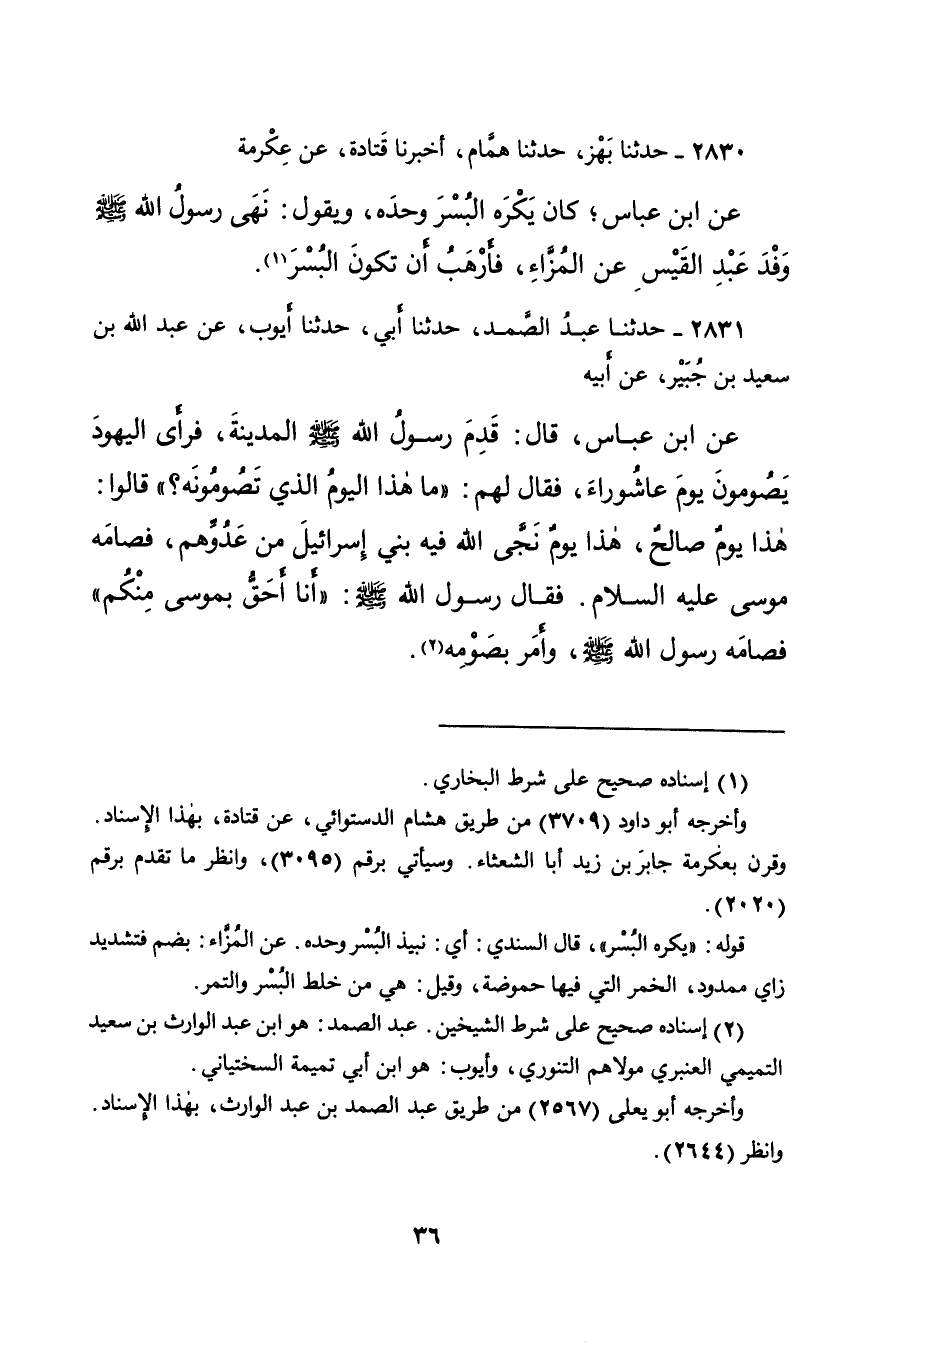 ٢٨٣٠ ـ حدثنا بَهْز، حدثنا همَّام، أخبرنا قَتادة، عن عِكْرمة
عن ابن عباس؛ كان يَكْرَه البُسْرَ وحدَه، ويقول: نَهَى رسولُ الله ﷺ
وَفْدَ عَبْدِ القَيْسِ عن المُزَّاءِ، فأَرْهَبُ أَن تكونَ البُسْرَ(١).
٢٨٣١ ـ حدثنـا عبـدُ الصَّمـد، حدثنا أَبي، حدثنا أَيوب، عن عبد الله بن
سعيد بن جُبَيْر، عن أَبيه
عن ابن عبـاس، قال: قَدِمَ رسـولُ الله ﷺ المدينةَ، فرأَى اليهودَ
يَصُومونَ يومَ عاشُوراءَ، فقال لهم: «ما هٰذا اليومُ الذي تَصُومُونَه؟» قالوا:
هٰذا يومٌ صالحٌ، هٰذا يومٌ نَجَّى الله فيه بني إِسرائيلَ من عَدُوِّهم، فصامَه
موسى عليه السـلام. فقـال رسـول الله ﷺ: «أَنا أَحَقُّ بموسى مِنْكُم»
فصامَه رسول الله ﷺ، وأَمَر بصَوْمِه(٢).
(١) إسناده صحيح على شرط البخاري.
وأخرجه أبو داود (٣٧٠٩) من طريق هشام الدستوائي، عن قتادة، بهٰذا الإِسناد.
وقرن بعكرمة جابرَ بن زيد أبا الشعثاء. وسيأتي برقم (٣٠٩٥)، وانظر ما تقدم برقم
(٢٠٢٠).
قوله: «يكره البُسْر»، قال السندي: أي: نبيذ البُسْر وحده. عن المُزَّاء: بضم فتشديد
زاي ممدود، الخمر التي فيها حموضة، وقيل: هي من خلط البُسْر والتمر.
(٢) إسناده صحيح على شرط الشيخين. عبد الصمد: هو ابن عبد الوارث بن سعيد
التميمي العنبري مولاهم التنوري، وأيوب: هو ابن أبي تميمة السختياني.
وأخرجه أبو يعلى (٢٥٦٧) من طريق عبد الصمد بن عبد الوارث، بهٰذا الإِسناد.
وانظر (٢٦٤٤).
٣٦